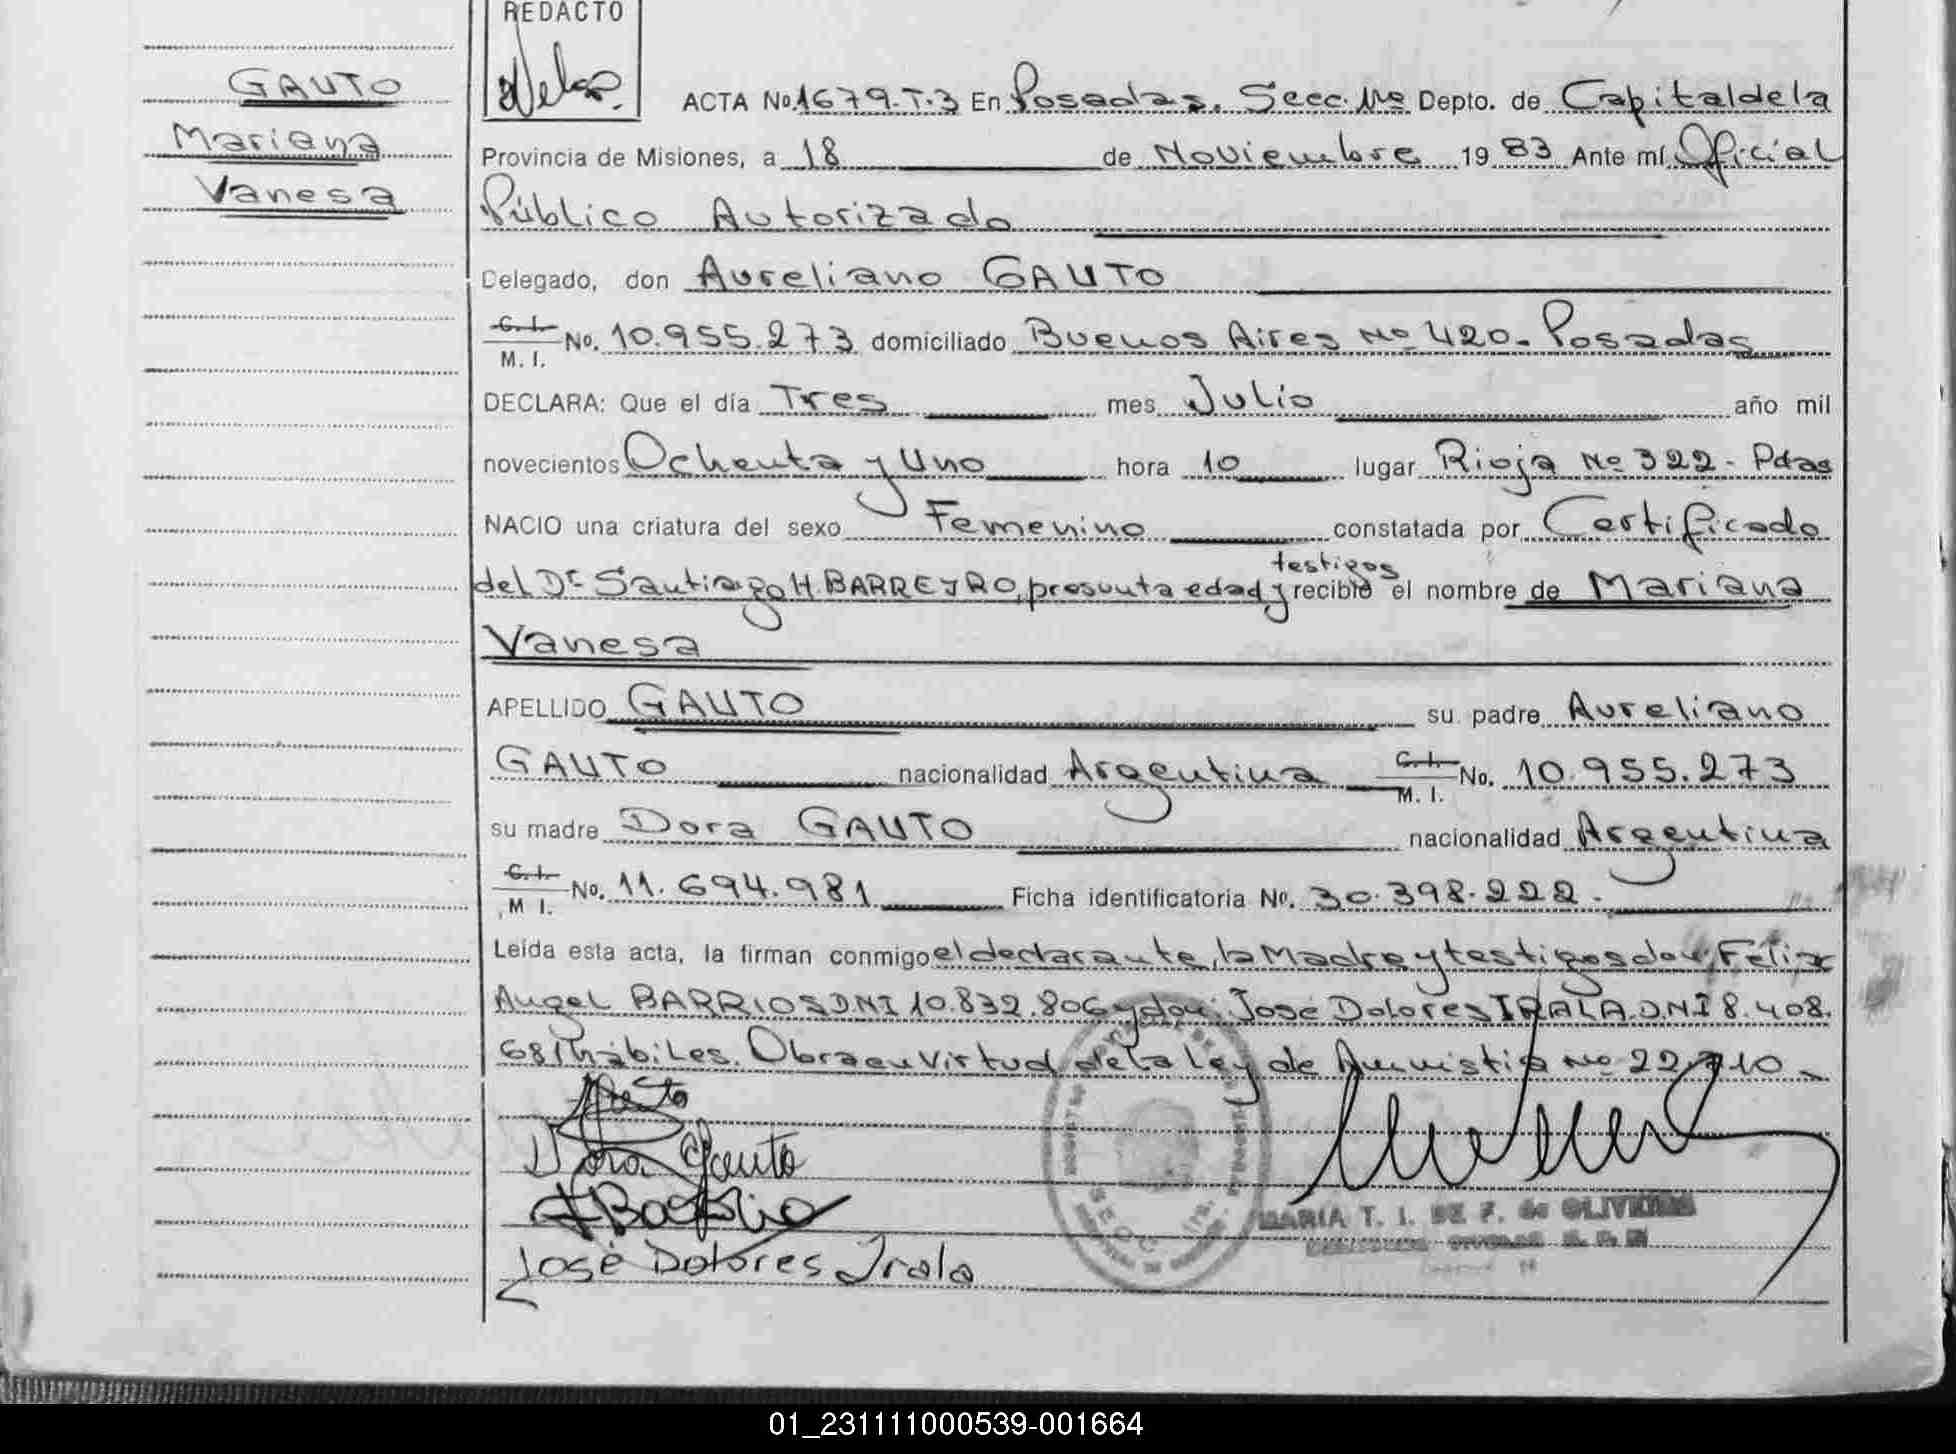 REDACTO
GAUTO
Mariana
Vanesa
ACTA No. 1679.T.3 En Posadas. Secc. 1ra Depto. de Capital de la
Provincia de Misiones, a 18 de Noviembre 1983 Ante mí Oficial
Público Autorizado
Delegado, don Aureliano GAUTO
C. I.
M. I. No. 10.955.273 domiciliado Buenos Aires Nº 420. Posadas
DECLARA: Que el día Tres mes Julio año mil
novecientos Ochenta y Uno hora 10 lugar Rioja Nº 322 - Pdas
NACIO una criatura del sexo Femenino constatada por Certificado
del Dr Santiago H. BARREYRO, presunta edad y testigos recibió el nombre de Mariana
Vanesa
APELLIDO GAUTO su padre Aureliano
GAUTO nacionalidad Argentina C. I. M. I. No. 10.955.273
su madre Dora GAUTO nacionalidad Argentina
C. I. M I. No. 11.694.981 Ficha identificatoria No. 30.398.222.
Leída esta acta, la firman conmigo el declarante, la Madre y testigos don, Félix
Angel BARRIOS DNI 10.832.806 y don: José Dolores IRALA. DNI 8.408.
681 hábiles. Obra en Virtud de la Ley de Amnistia Nº 22.710
Dora Gauto
José Dolores Irala
MARIA T. I. DE F. de OLIVEIRA
SECC
01_231111000539-001664